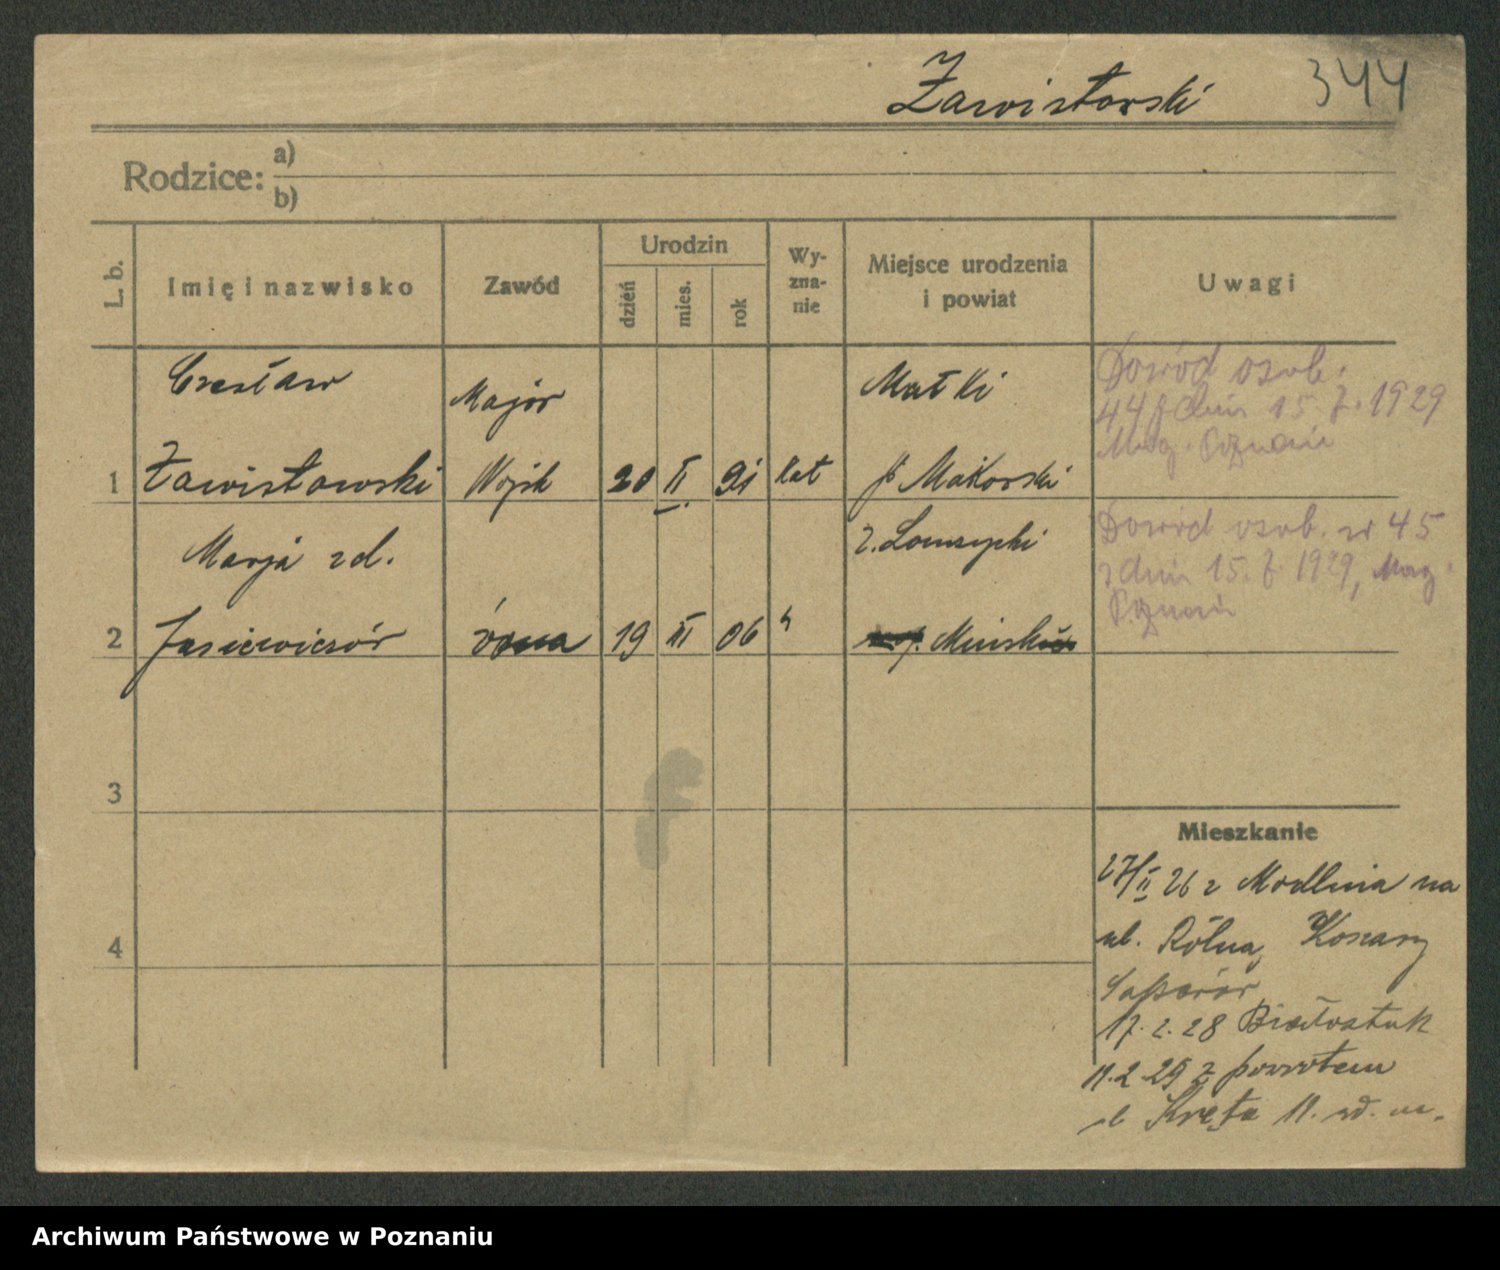 Zawistowski 344
Rodzice: a)
b)
L. b.
Imię i nazwisko
Zawód
Urodzin
dzień
mies.
rok
Wy-
zna-
nie
Miejsce urodzenia
i powiat
Uwagi
Czesław
Major
Małki
Dowód osob.
44 z dnia 15. 7. 1929
Mag. Poznań
1 Zawistowski Wojsk 20 II 91 kat p Makowski
Marja zd.
z. Łomzycki
Dowód osob. nr 45
z dnia 15. 7. 1929, Mag.
Poznań
2 Jasiewiczów żona 19 III 06 " Mińsk
3
4
Mieszkanie
27/II 26 z Modlina na
ul. Rólna, Koszary
Saperów
17. 2. 28 Białostok
11. 2. 29 z powrotem
ul Kręta 11.
Archiwum Państwowe w Poznaniu